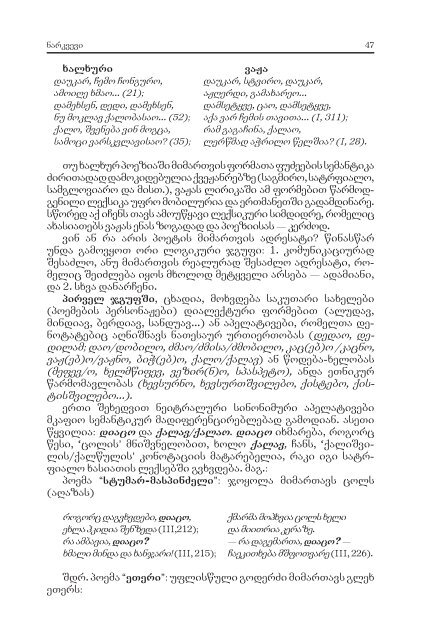 ნარკვევი 47
ხალხური ვაჟა
დაუკარ, ჩემო ჩონგურო, დაუკარ, სტვირო, დაუკარ,
ამოიღე ხმაო... (21); აჟღერდი, გამახარეო...
დამეხსენ, დედი, დამეხსენ, დამსეტყვე, ცაო, დამსეტყვე,
ნუ მოკლავ ქალობასაო... (52); აქა ვარ ჩემის თავითა... (I, 311);
ქალო, შვენება ვინ მოგცა, რამ გაგაჩინა, ქალაო,
სამოცი ვარსკვლავისაო? (35); ლერწმად აჭრილო წელშია? (I, 28).
თუ ხალხურ პოეზიაში მიმართვის ფორმათა ფუძეების სემანტიკა
ძირითადად დამოკიდებულია ქვეჟანრებზე (საგმირო, სატრფიალო,
სამგლოვიარო და მისთ.), ვაჟას ლირიკაში ამ ფორმებით წარმოდ-
გენილი ლექსიკა უფრო მობილურია და ერთმანეთში გადამდინარე.
სწორედ აქ იჩენს თავს ამოუწყავი ლექსიკური სიმდიდრე, რომელიც
ახასიათებს ვაჟას ენას ზოგადად და პოეზიისას — კერძოდ.
ვინ ან რა არის პოეტის მიმართვის ადრესატი? წინასწარ
უნდა გამოვყოთ ორი ლოგიკური ჯგუფი: 1. კომუნიკაციურად
შესაძლო, ანუ მიმართვის რეალურად შესაძლო ადრესატი, რო-
მელიც შეიძლება იყოს მხოლოდ მეტყველი არსება — ადამიანი,
და 2. სხვა დანარჩენი.
პირველ ჯგუფში, ცხადია, მოხვდება საკუთარი სახელები
(პოემების პერსონაჟები) დიალექტური ფორმებით (ალუდავ,
მინდიავ, ბერდიავ, სანდუავ...) ან აპელატივები, რომელთა დე-
ნოტატებიც აღნიშნავს ნათესაურ ურთიერთობას (დედაო, დე-
დილამ; დაო/დობილო, ძმაო/ძმისა/ძმობილო, კაც(ებ)ო /კაცნო,
ვაჟ(ებ)ო/ვაჟნო, ბიჭ(ებ)ო, ქალო/ქალავ) ან წოდება-ხელობას
(მეფევ/ო, ხელმწიფევ, ვეზირ(ნ)ო, სპასპეტო), ანდა ეთნიკურ
წარმომავლობას (ხევსურნო, ხევსურთშვილებო, ქისტებო, ქის-
ტისშვილებო...).
ერთი შეხედვით ნეიტრალური სინონიმური აპელატივები
მკაფიო სემანტიკურ მადიფერენცირებლებად გამოდიან. ასეთი
წყვილია: დიაცო და ქალავ/ქალაო. დიაცო იხმარება, როგორც
წესი, ‘ცოლის’ მნიშვნელობით, ხოლო ქალავ, ჩანს, ‘ქალიშვი-
ლის/ქალწულის’ კონოტაციის მატარებელია, რაკი იგი სატრ-
ფიალო ხასიათის ლექსებში გვხვდება. მაგ.:
პოემა “სტუმარ-მასპინძელი”: ჯოყოლა მიმართავს ცოლს
(აღაზას)
როგორც დაგვხვდები, დიაცო, ქმარმა მოჰხვია ცოლს ხელი
ეხლა ჰკიდია შენზედა (III,212); და მიითრია კერაზე.
რა ამბავია, დიაცო? — რა დაგემართა, დიაცო? —
ხმალი მინდა და ხანჯარი! (III, 215); ჩაეკითხება მშფოთვარე (III, 226).
შდრ. პოემა “ეთერი”: უფლისწული გოდერძი მიმართავს გლეხ
ეთერს: